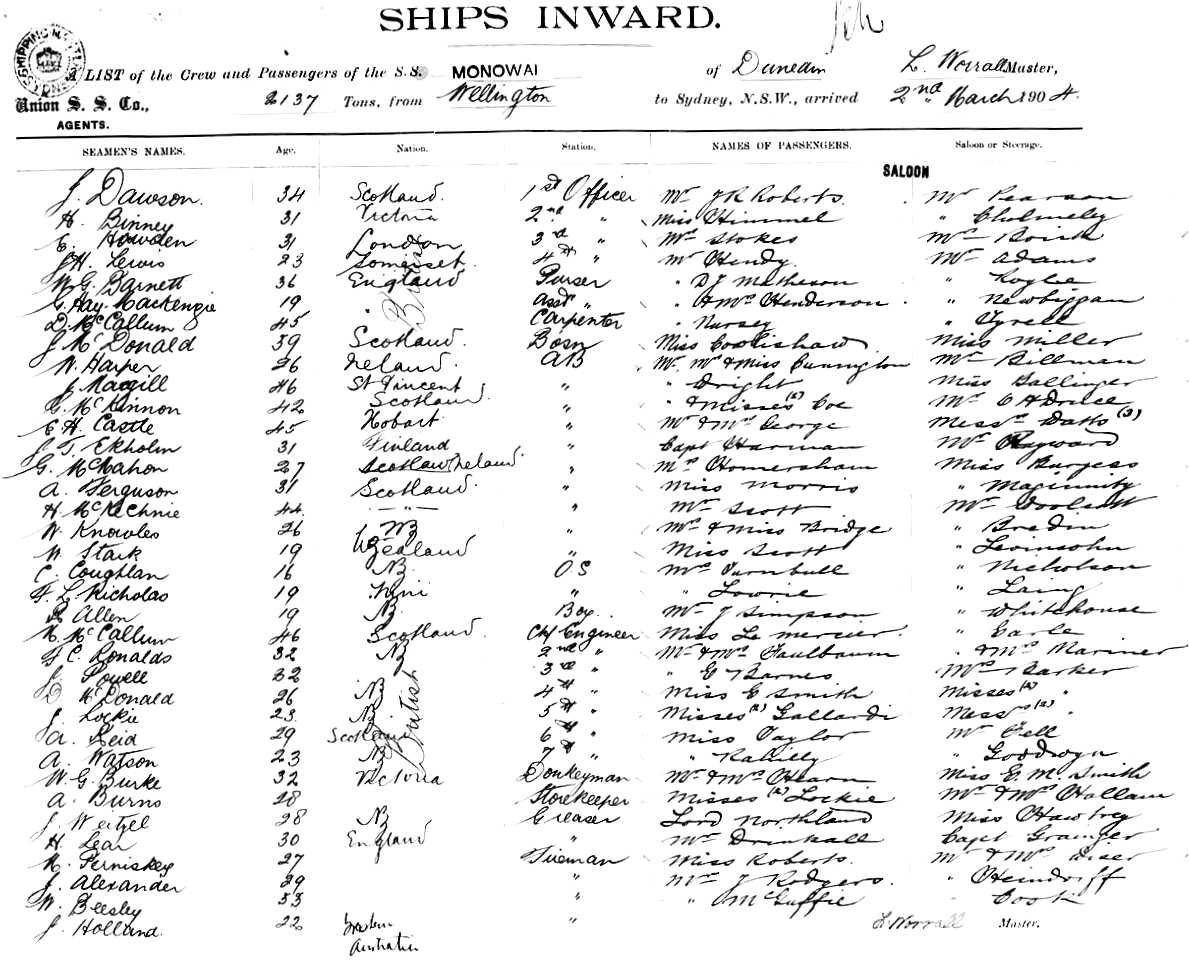 SHIPS INWARD.
A LIST of the Crew and Passengers of the S.S. MONOWAI of Dunedin L. Worrall Master,
Union S. S. Co., 2137 Tons, from Wellington to Sydney, N.S.W., arrived 2nd March 1904
AGENTS.
SEAMEN'S NAMES. Age. Nation. Station. NAMES OF PASSENGERS. Saloon or Steerage.
SALOON
J. Dawson. 34 Scotland. 1st Officer Mr J R Roberts. Mr Pearson
H. Binney 31 Victoria 2nd " Miss Himmel " Cholmeley
E. Howden 31 London 3rd " Mrs Stokes
J H. Lewis 23 Somerset. 4th " Mr Hendy. Mr Adams
W. G. Barnett 36 England Purser " D J Matheson
G. Hay. Mackenzie 19 " Asst " " & Mrs Henderson " Newbiggan
D. McCallum 45 Carpenter " Nursey " Tyrell
J. McDonald 39 Scotland. Bosn Miss Coolishaw Miss Miller
W. Harper 26 Ireland. AB Mr. Mrs & Miss Cunnington Mr Billman
J. Magill 46 St Vincent " " Bright Miss Ballinger
G. McKinnon 42 Scotland. " " & Misses (2) Coe
E H. Castle 45 Hobart " Mr & Mrs George
J. F. Ekholm 31 Finland " Capt Harman Mr Hayward
G. McMahon 27 Ireland. " Mrs Homersham Miss Burgess
A. Ferguson 31 Scotland. " Miss Morris " Maginnity
H. McKechnie 44 " " Mr Scott Mr Woolcott
W. Knowles 26 NB " Mrs & Miss Bridge " Breden
W. Stark 19 Zealand " Miss Scott " Levinsohn
C. Coughlan 16 NB OS Mrs Turnbull " Nicholson
F. L. Nicholas 19 " " Lowrie " Laing
R Allen 19 NB Boy. Mr J Simpson " Whitehouse
N. McCallum 46 Scotland. Ch Engineer Miss Le Mercier. " Earle
F C. Ronalds 32 NB 2nd " Mr & Mrs Faulbaum " & Mrs Mariner
J. Powell 32 3rd " " E Barnes. Mrs Barker
D McDonald 26 NB 4th " Miss E Smith Misses (2) "
J. Lockie 23. NB 5th " Misses (2) Gallardi Messrs (2) "
A. Reid 29 Scotland 6th " Miss Taylor Mr Fell
A. Watson 23 NB 7th " " Rahilly " Goodwyn
W. G. Burke 32 Victoria Donkeyman Mr & Mrs Hearn Miss E. M. Smith
A. Burns 28 Storekeeper Misses (2) Lockie Mr & Mrs Hallam
J. Weitzel 28 NB Greaser Lord Northland Miss Hawtrey
H. Lear 30 England " Mr Drinkall Capt Grainger
N. Perniskey 27 Fireman Miss Roberts. Mr & Mrs
J. Alexander 29 " Mr J Rodgers. " Heindorff
W. Beesley 53 " McGuffie " Cook
J. Holland. 22 Australia " L. Worrall Master.
British
British